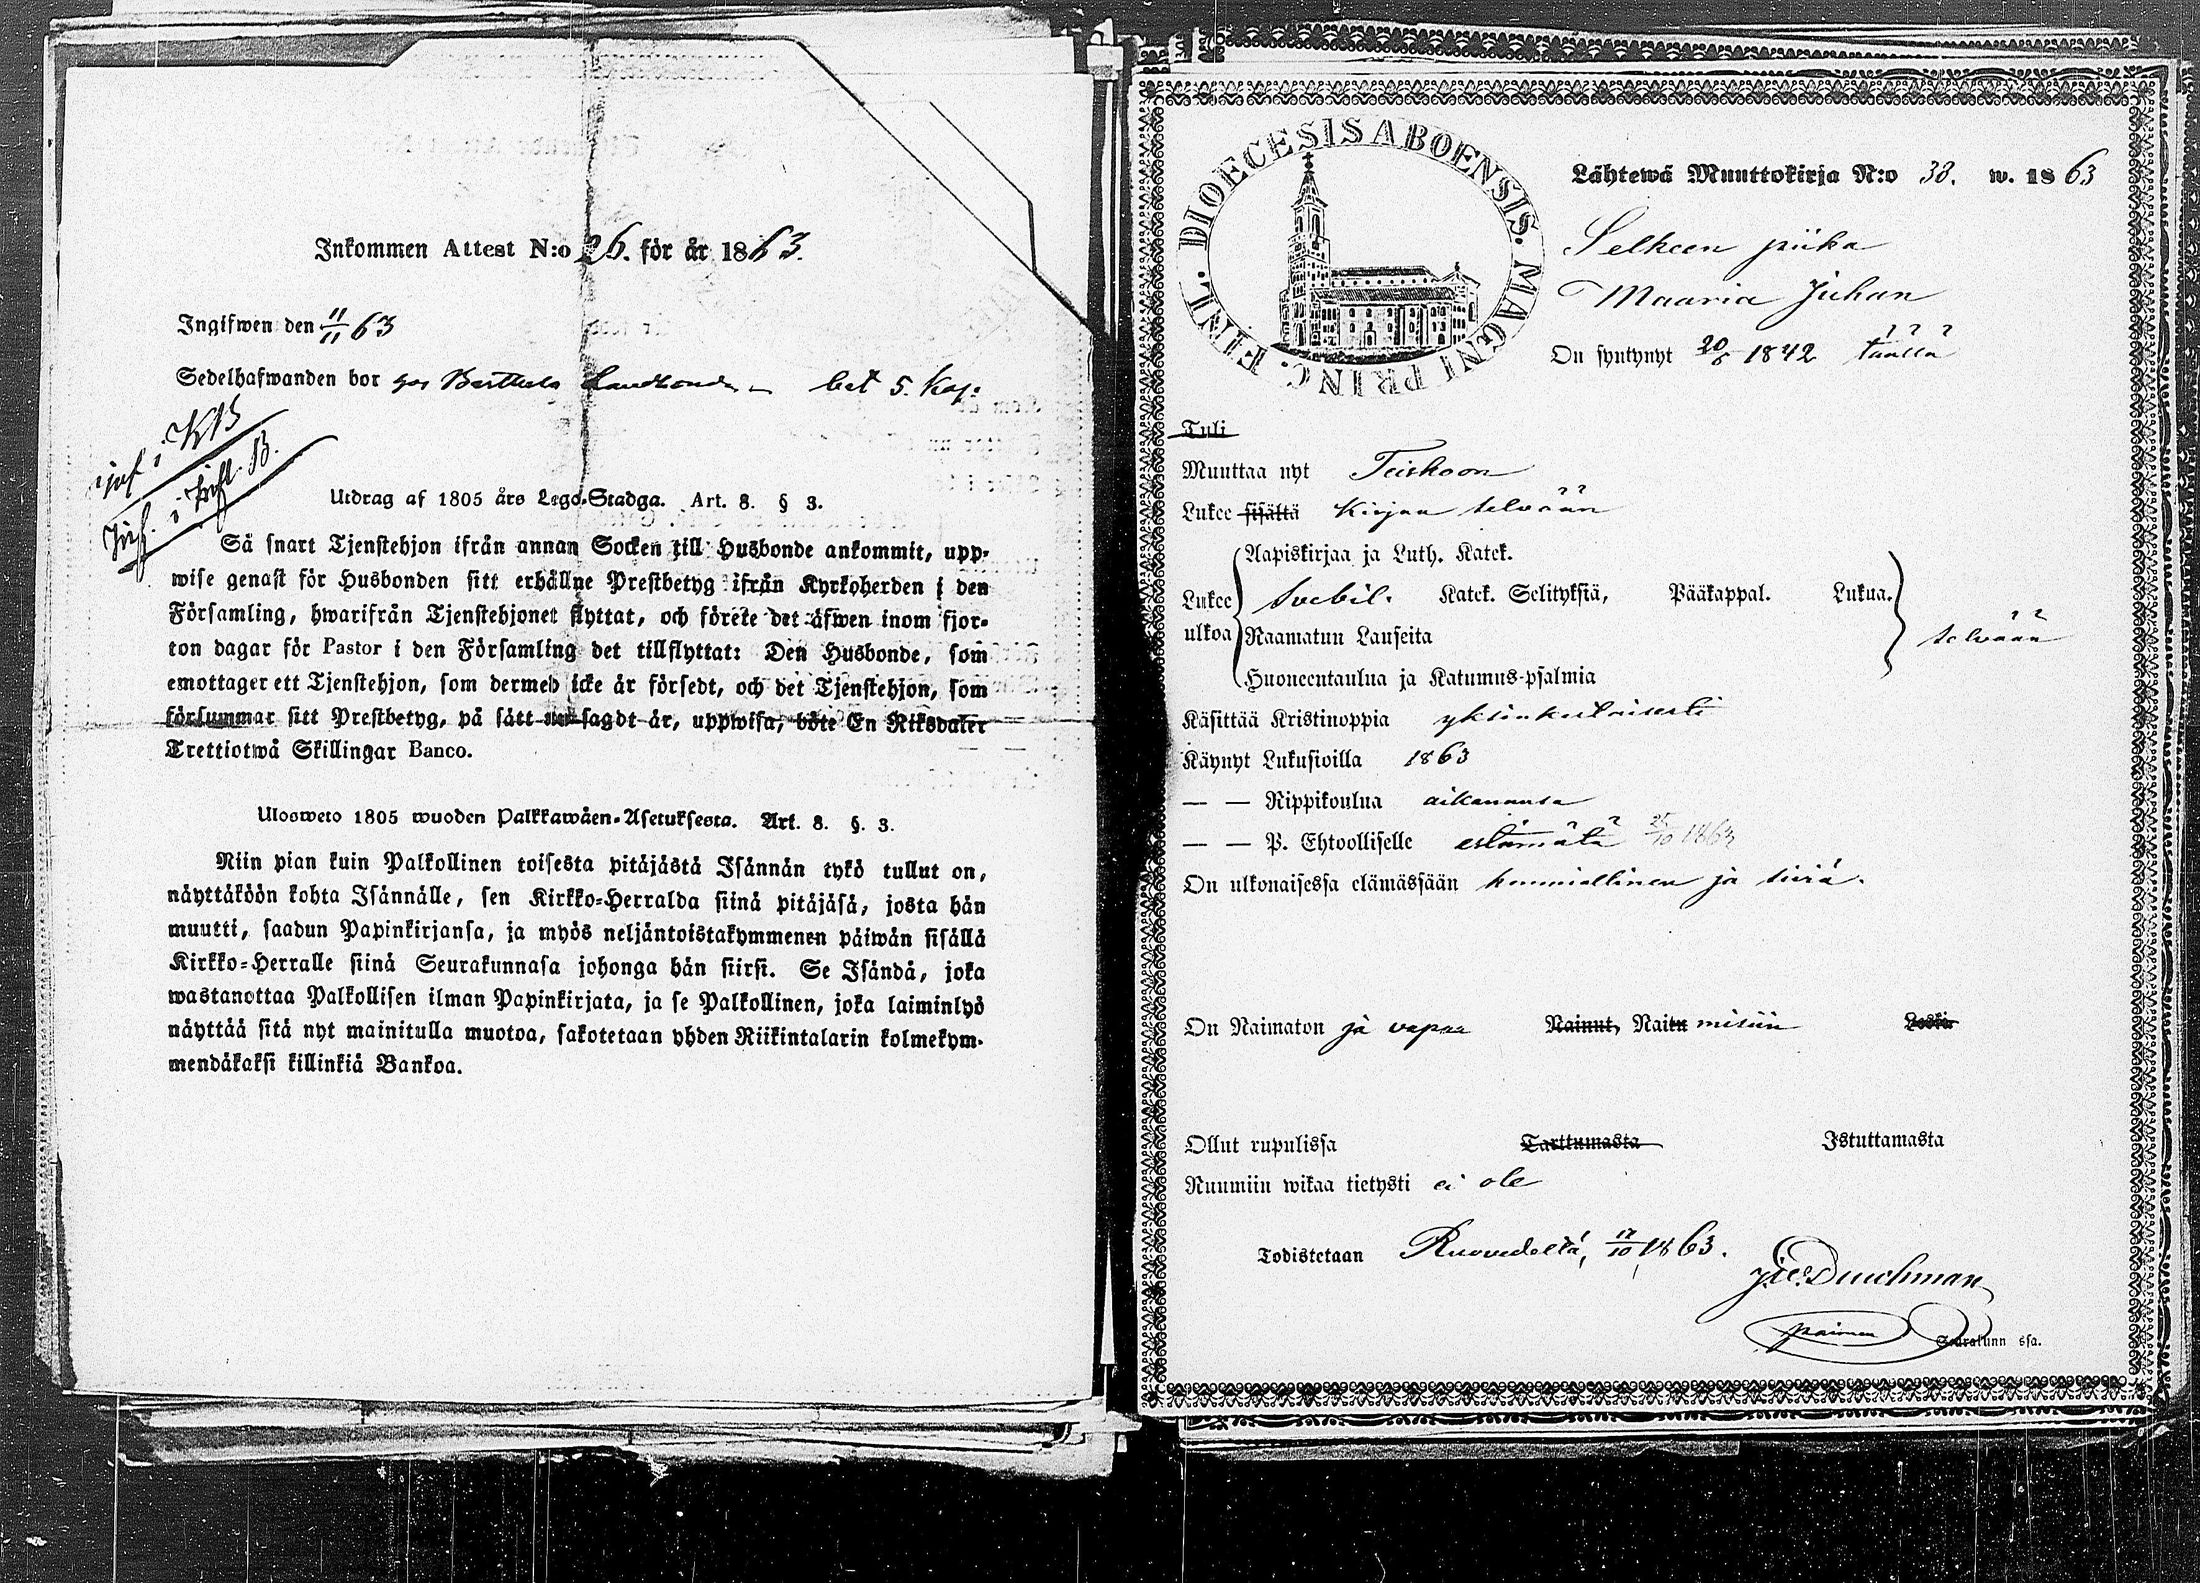 Inkommen Attest N:o 26. för år 1863.
Ingifwen den 11/11 63
Sedelhafwanden bor hos Barttula Landbonde – bet 5. Kop.
inf i KB
Inf. i Infl. B.
Utdrag af 1805 års Lego-Stadga. Art. 8. § 3.
Så snart Tjenstehjon ifrån annan Socken till Husbonde ankommit, upp-
wise genast för Husbonden sitt erhållne Prestbetyg ifrån Kyrkoherden i den
Församling, hwarifrån Tjenstehjonet flyttat, och förete det äfwen inom fjor-
ton dagar för Pastor i den Församling det tillflyttat: Den Husbonde, som
emottager ett Tjenstehjon, som dermed icke är försedt, och det Tjenstehjon, som
försummar sitt Prestbetyg, på sätt nu sagdt är, uppwisa, böte En Riksdaler
Trettiotwå Skillingar Banco.
Ulosweto 1805 wuoden Palkkawäen-Asetuksesta. Art. 8. §. 3.
Niin pian kuin Palkollinen toisesta pitäjästä Isännän tykö tullut on,
näyttäköön kohta Isännälle, sen Kirkko-Herralda siinä pitäjäsä, josta hän
muutti, saadun Papinkirjansa, ja myös neljäntoistakymmenen päiwän sisällä
Kirkko-Herralle siinä Seurakunnasa johonga hän siirsi. Se Isändä, joka
wastanottaa Palkollisen ilman Papinkirjata, ja se Palkollinen, joka laiminlyö
näyttää sitä nyt mainitulla muotoa, sakotetaan yhden Riikintalarin kolmekym-
mendäkaksi killinkiä Bankoa.
DIOECESIS ABOENSIS. MAGNI PRINC. FINL.
Lähtewä Muuttokirja N:o 38. w. 1863
Selkeen piika
Maaria Juhan
On syntynyt 20/6 1842 täällä
Tuli
Muuttaa nyt Teiskoon
Lukee sisältä Kirjan selvään
Aapiskirjaa ja Luth. Katek.
Lukee ulkoa Svebil. Katek. Selityksiä, Pääkappal. Lukua.
Raamatun Lauseita selvään
Huoneentaulua ja Katumus-psalmia
Käsittää Kristinoppia yksinkertaisesti
Käynyt Lukusioilla 1863
— — Rippikoulua aikanansa
— — P. Ehtoolliselle estämätä 25/10 1863
On ulkonaisessa elämässään kunniallinen ja siviä.
On Naimaton ja vapaa Nainut, Naitu misiin Leski
Ollut rupulissa Tarttumasta Istuttamasta
Ruumiin wikaa tietysti ei ole
Todistetaan Ruovedeltä, 17/10 1863.
Seurakunn ssa.